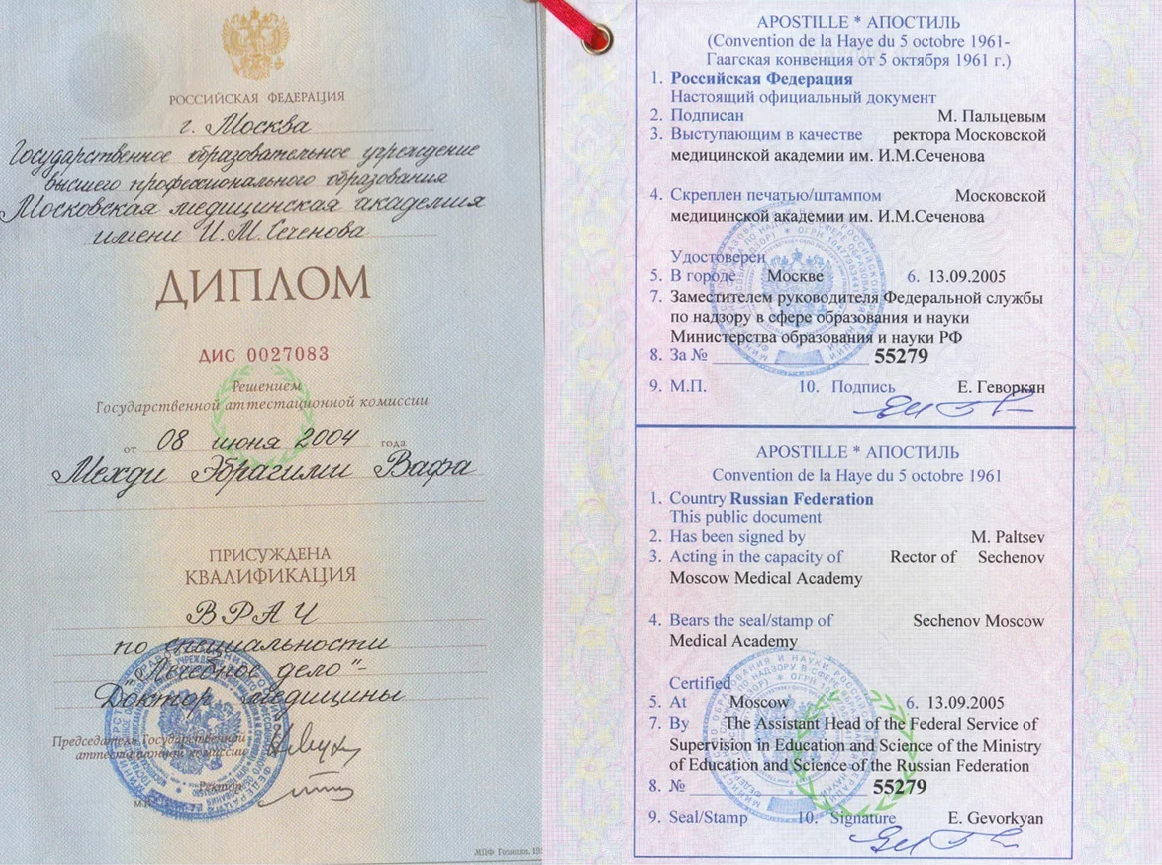 РОССИЙСКАЯ ФЕДЕРАЦИЯ
г. Москва
Государственное образовательное учреждение
высшего профессионального образования
Московская медицинская академия
имени И.М.Сеченова
ДИПЛОМ
ДИС 0027083
Решением
Государственной аттестационной комиссии
от 08 июня 2004 года
Мехди Эбрагими Вафа
ПРИСУЖДЕНА
КВАЛИФИКАЦИЯ
ВРАЧ
по специальности
"Лечебное дело"-
Доктор медицины
Председатель Государственной
аттестационной комиссии
Ректор
МПФ Гознака.
APOSTILLE * АПОСТИЛЬ
(Convention de la Haye du 5 octobre 1961-
Гаагская конвенция от 5 октября 1961 г.)
1. Российская Федерация
Настоящий официальный документ
2. Подписан М. Пальцевым
3. Выступающим в качестве ректора Московской
медицинской академии им. И.М.Сеченова
4. Скреплен печатью/штампом Московской
медицинской академии им. И.М.Сеченова
Удостоверен
5. В городе Москве 6. 13.09.2005
7. Заместителем руководителя Федеральной службы
по надзору в сфере образования и науки
Министерства образования и науки РФ
8. За № 55279
9. М.П. 10. Подпись Е. Геворкян
APOSTILLE * АПОСТИЛЬ
Convention de la Haye du 5 octobre 1961
1. Country Russian Federation
This public document
2. Has been signed by M. Paltsev
3. Acting in the capacity of Rector of Sechenov
Moscow Medical Academy
4. Bears the seal/stamp of Sechenov Moscow
Medical Academy
Certified
5. At Moscow 6. 13.09.2005
7. By The Assistant Head of the Federal Service of
Supervision in Education and Science of the Ministry
of Education and Science of the Russian Federation
8. № 55279
9. Seal/Stamp 10. Signature E. Gevorkyan